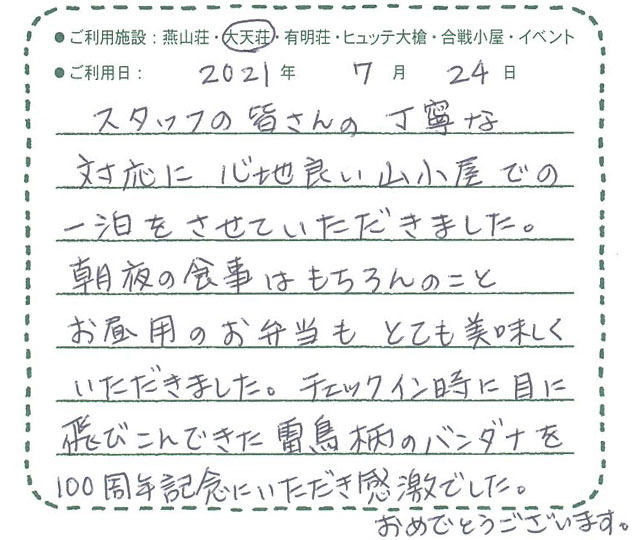 ●ご利用施設：燕山荘・大天荘・有明荘・ヒュッテ大槍・合戦小屋・イベント
●ご利用日： 2021年 7月 24日
スタッフの皆さんの 丁寧な
対応に 心地良い山小屋での
一泊をさせていただきました。
朝夜の食事はもちろんのこと
お昼用のお弁当も とても美味しく
いただきました。チェックイン時に目に
飛びこんできた雷鳥柄のバンダナを
100周年記念にいただき感激でした。
おめでとうございます。